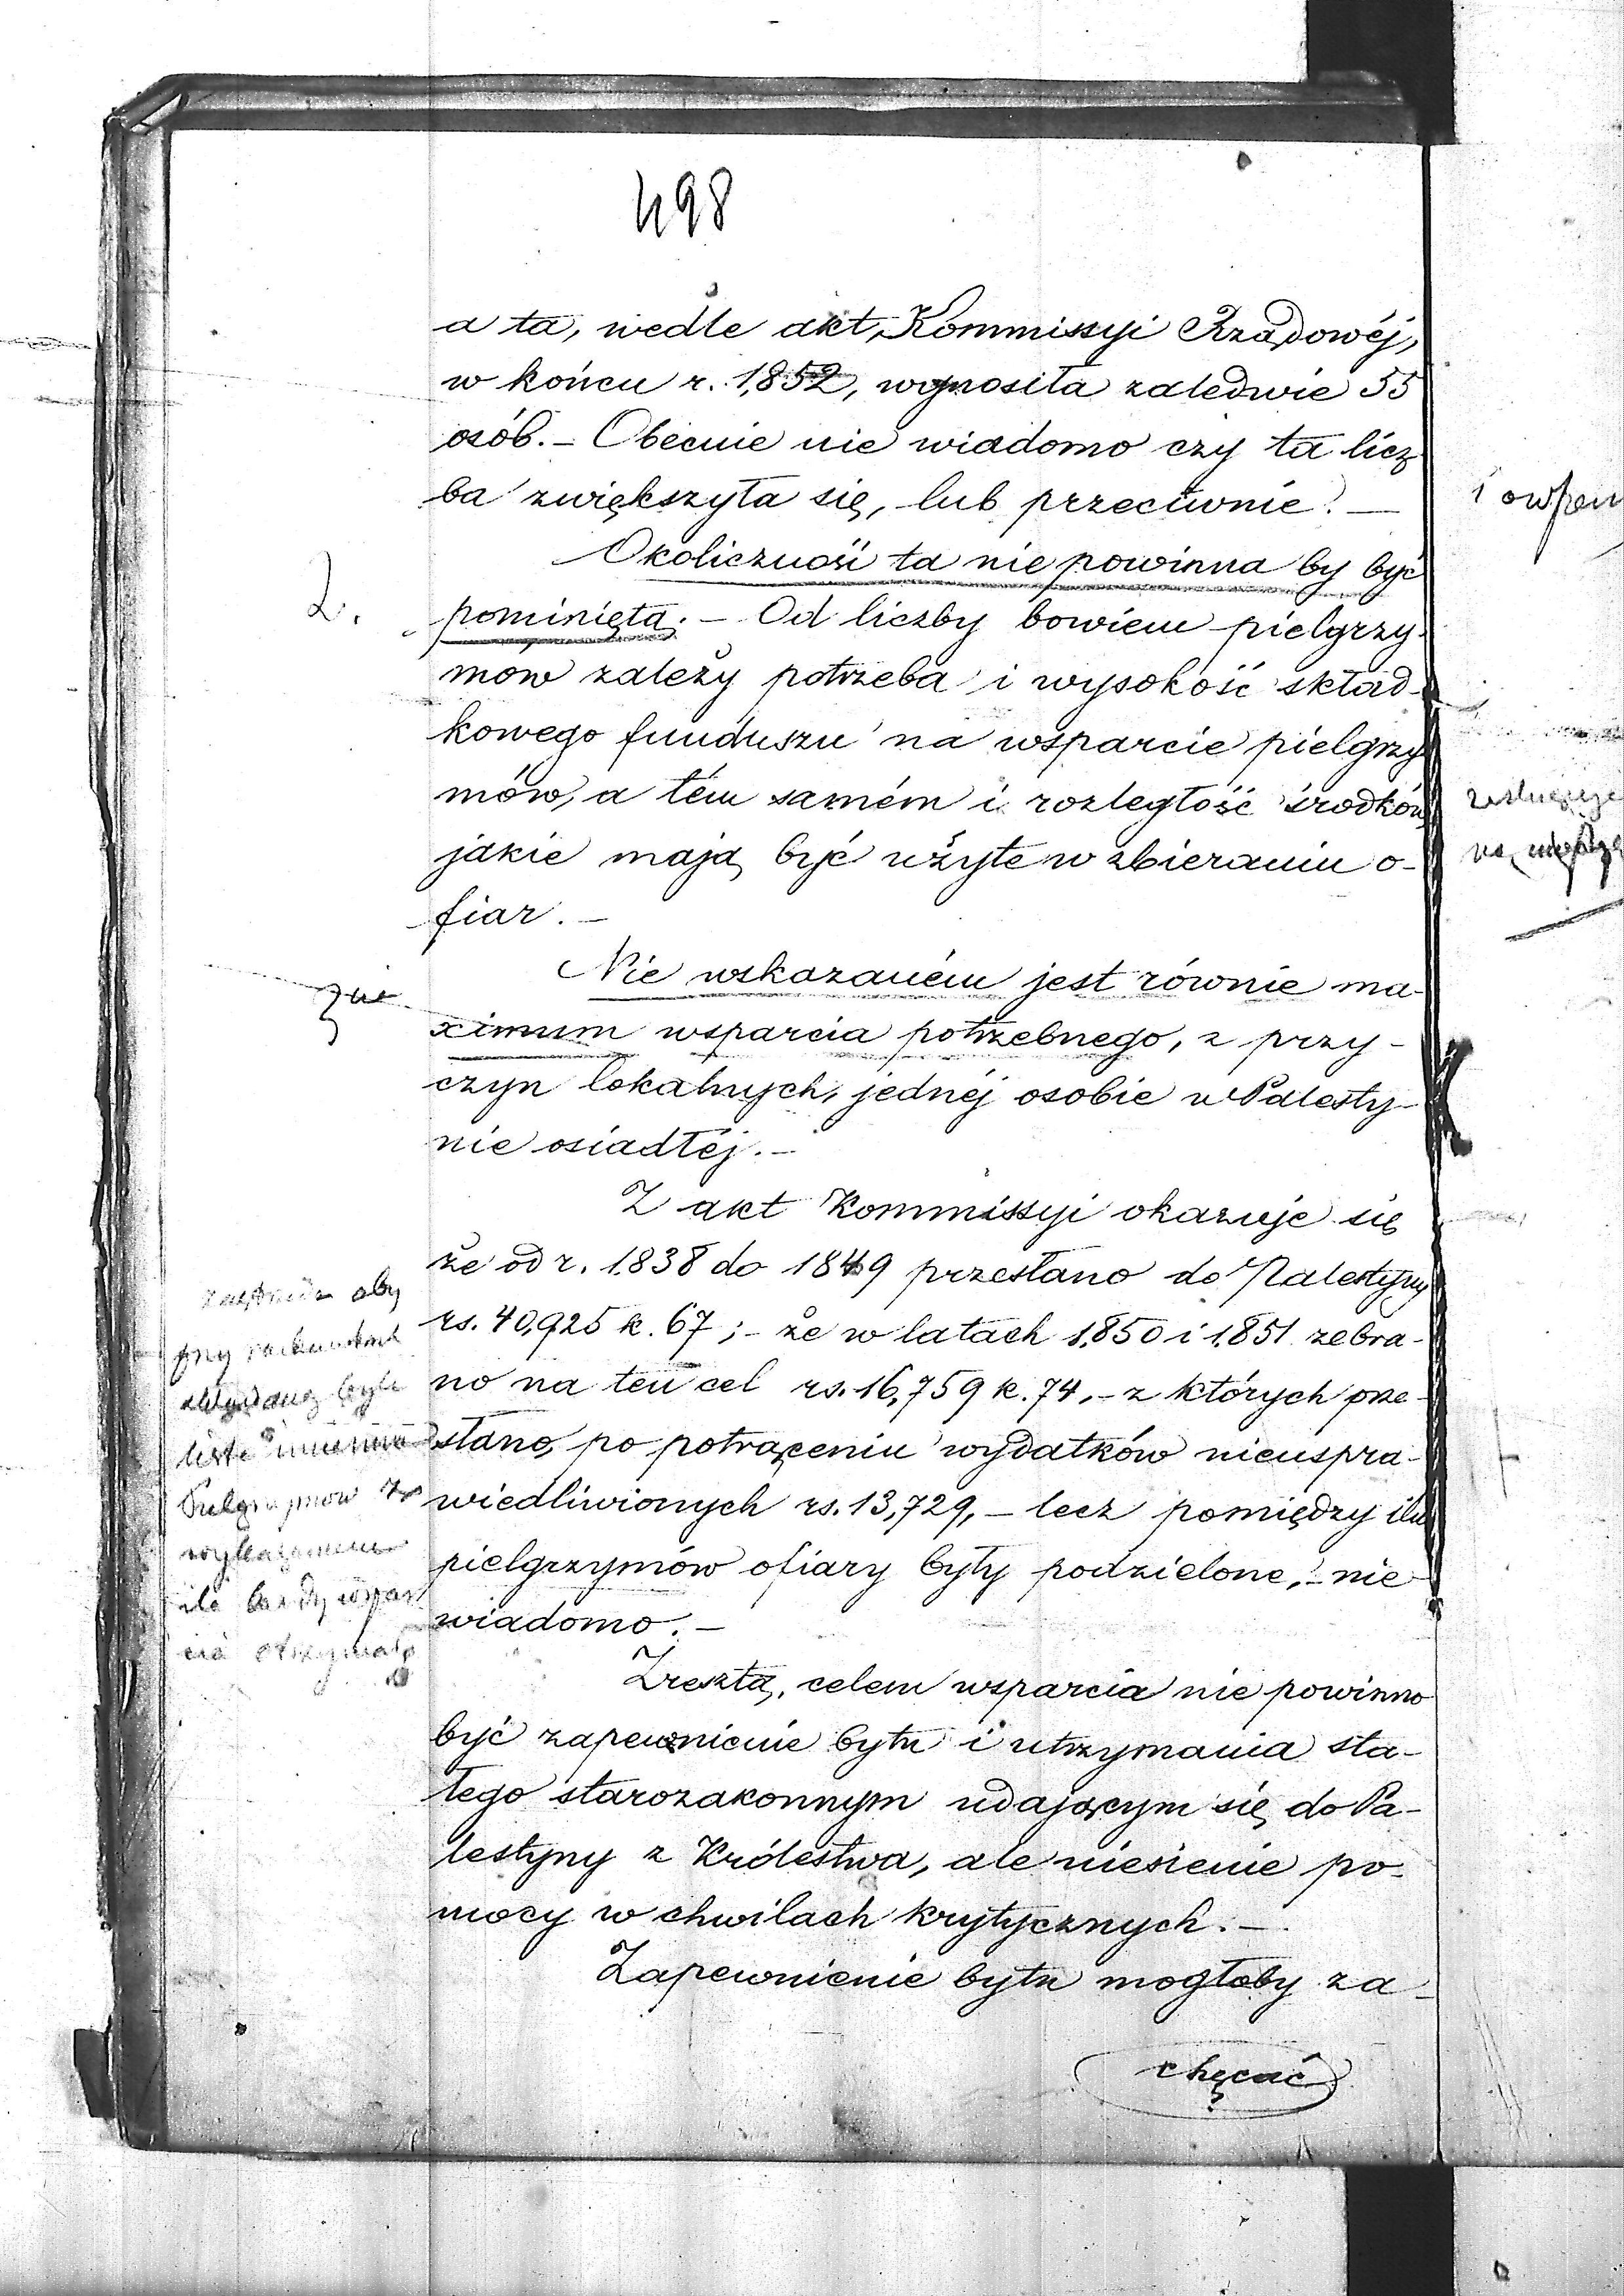 498
a ta, wedle akt, Kommissyi Rządowéj,
w końcu r. 1852, wynosiła zaledwie 55
osób. – Obecnie nie wiadomo czy ta licz
ba zwiększyła się, lub przeciwnie. –
Okoliczność ta nie powinna by być
2.
pominiętą. – Od liczby bowiem pielgrzy-
mow zależy potrzeba i wysokość skład-
kowego funduszu na wsparcie pielgrzy
mów, a tém samém i rozległość środków
jakie mają być użyte w zbieraniu o-
fiar. –
Nie wskazaném jest równie ma-
ximum wsparcia potrzebnego, z przy-
czyn lokalnych, jednéj osobie w Palesty-
nie osiadłéj. –
Z akt Kommissyi okazuje się
że od r. 1838 do 1849 przesłano do Palestyny
rs. 40,925 k. 67; – że w latach 1850 i 1851 zebra-
no na ten cel rs. 16,759 k. 74, – z których prze-
słano, po potrąceniu wydatków nieuspra-
wiedliwionych rs. 13,729, – lecz pomiędzy ilu
pielgrzymów ofiary były podzielone, – nie
wiadomo. –
aby
przy
była
lista
Pielgrzymow
ile
otrzymał
Zresztą, celem wsparcia nie powinno
być zapewnienie bytu i utrzymania sta-
łego starozakonnym udającym się do Pa-
lestyny z Królestwa, ale niesienie po-
mocy w chwilach krytycznych. –
Zapewnienie bytu mogłoby za-
chęcać